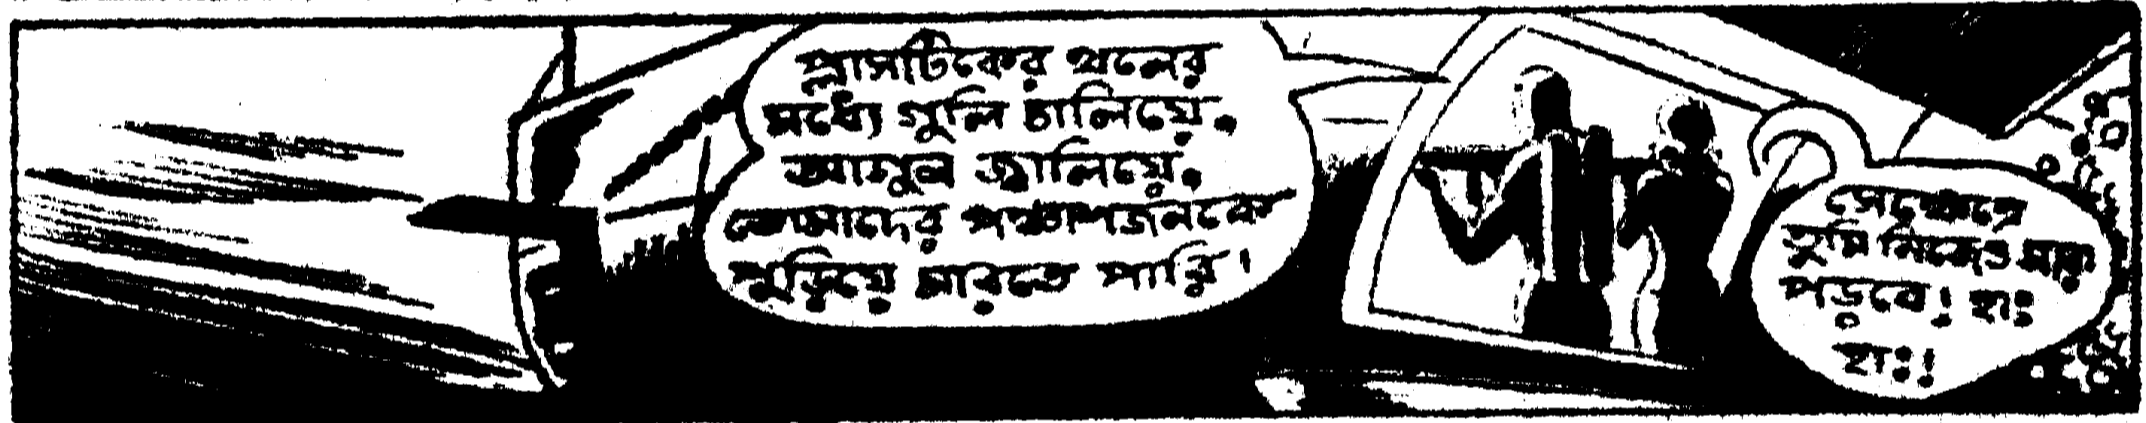 প্লাসটিকের থলের
মধ্যে গুলি চালিয়ে.
আগুন জ্বালিয়ে.
তোমাদের পঞ্চাশজনকে
পুড়িয়ে মারতে পারি।
সেক্ষেত্রে
তুমি নিজেও মারা
পড়বে! হাঃ
হাঃ!